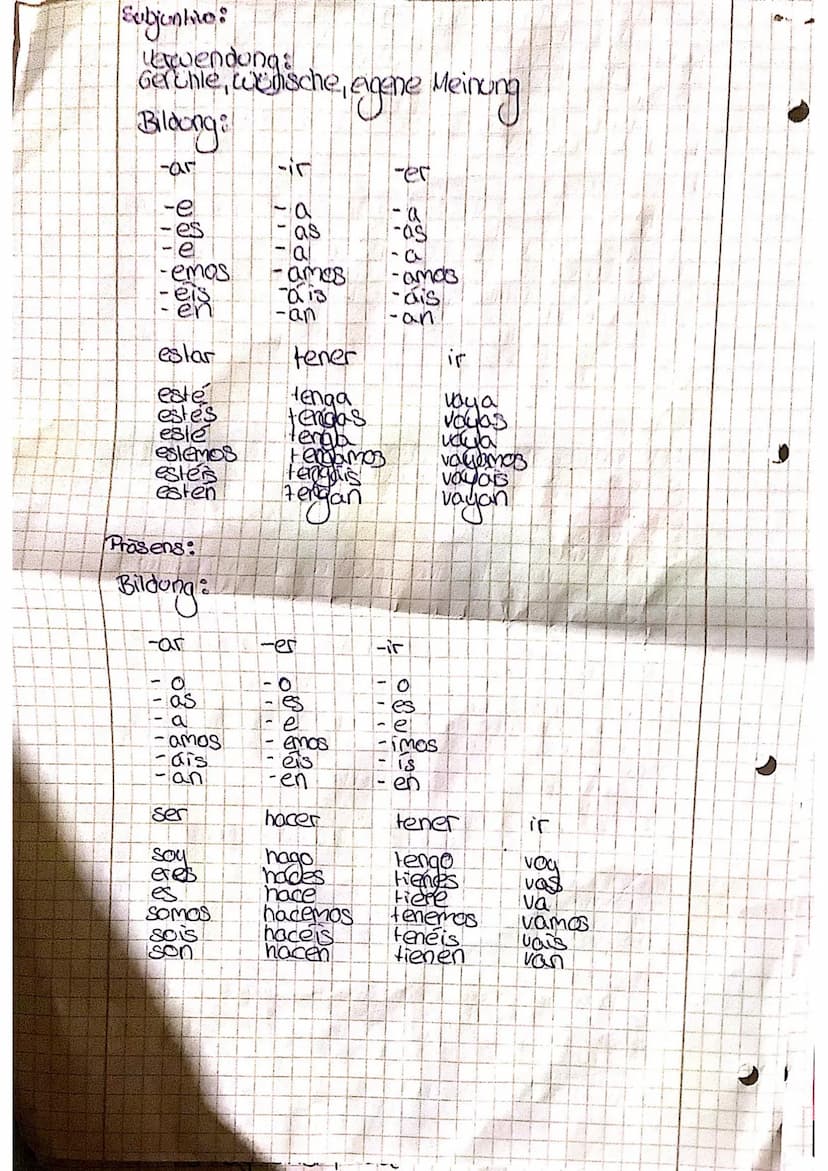 Subjuntivo:
Verwendung:
Gefühle, Wünsche, eigene Meinung
Bildung:
-ar -ir -er
-e -a -a
-es -as -as
-e -a -a
-emos -amos -amos
-éis -áis -áis
-en -an -an
estar tener ir
esté tenga vaya
estés tengas vayas
esté tenga vaya
estemos tengamos vayamos
estéis tengáis vayais
estén tengan vayan
Präsens:
Bildung:
-ar -er -ir
-o -o -o
-as -es -es
-a -e -e
-amos -emos -imos
-áis -éis -ís
-an -en -en
ser hacer tener ir
soy hago tengo voy
eres haces tienes vas
es hace tiene va
somos hacemos tenemos vamos
sois hacéis tenéis vais
son hacen tienen van